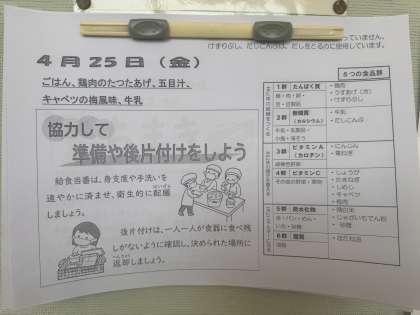 っていません。
けずりぶし、だしこんぶは、だしをとるのに使用しています。
4月25日（金）
ごはん、鶏肉のたつたあげ、五目汁、
キャベツの梅風味、牛乳
6つの食品群
1群 たんぱく質
・鶏肉
・うすあげ（油）
・けずりぶし
2群 無機質
（カルシウム）
・牛乳
・だしこんぶ
3群 ビタミンA
（カロテン）
・にんじん
・青ねぎ
4群 ビタミンC
・しょうが
・たまねぎ
・しめじ
・キャベツ
・梅肉
5群 炭水化物
・精白米
・じゃがいもでん粉
・砂糖
6群 脂質
協力して
準備や後片付けをしよう
給食当番は、身支度や手洗いを
速やかに済ませ、衛生的に配膳
しましょう。
後片付けは、一人一人が食器に食べ残
しがないように確認し、決められた場所に
返却しましょう。